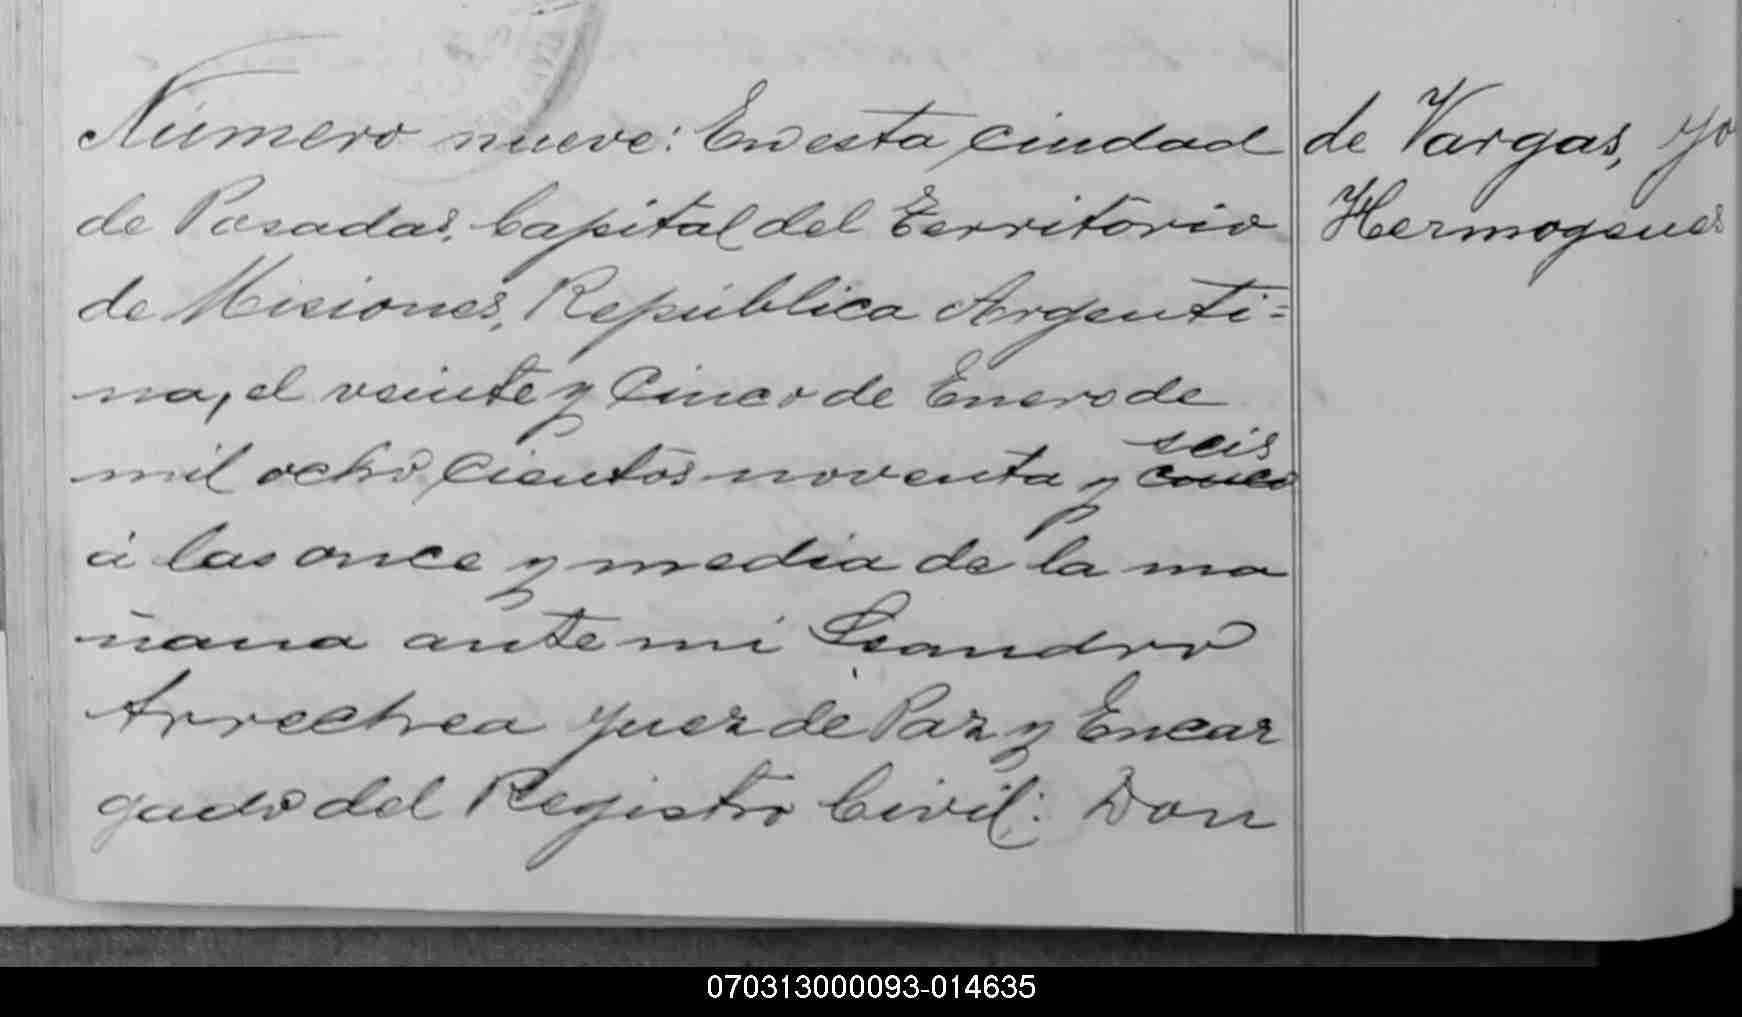 Número nueve: En esta ciudad
de Posadas, Capital del Territorio
de Misiones, República Argenti=
na, el veinte y cinco de Enero de
seis
mil ocho cientos noventa y cinco
á las once y media de la ma
ñana ante mi Leandro
Arrechea Juez de Paz y Encar
gado del Registro Civil: Don
de Vargas, Yo
Hermogenes
070313000093-014635